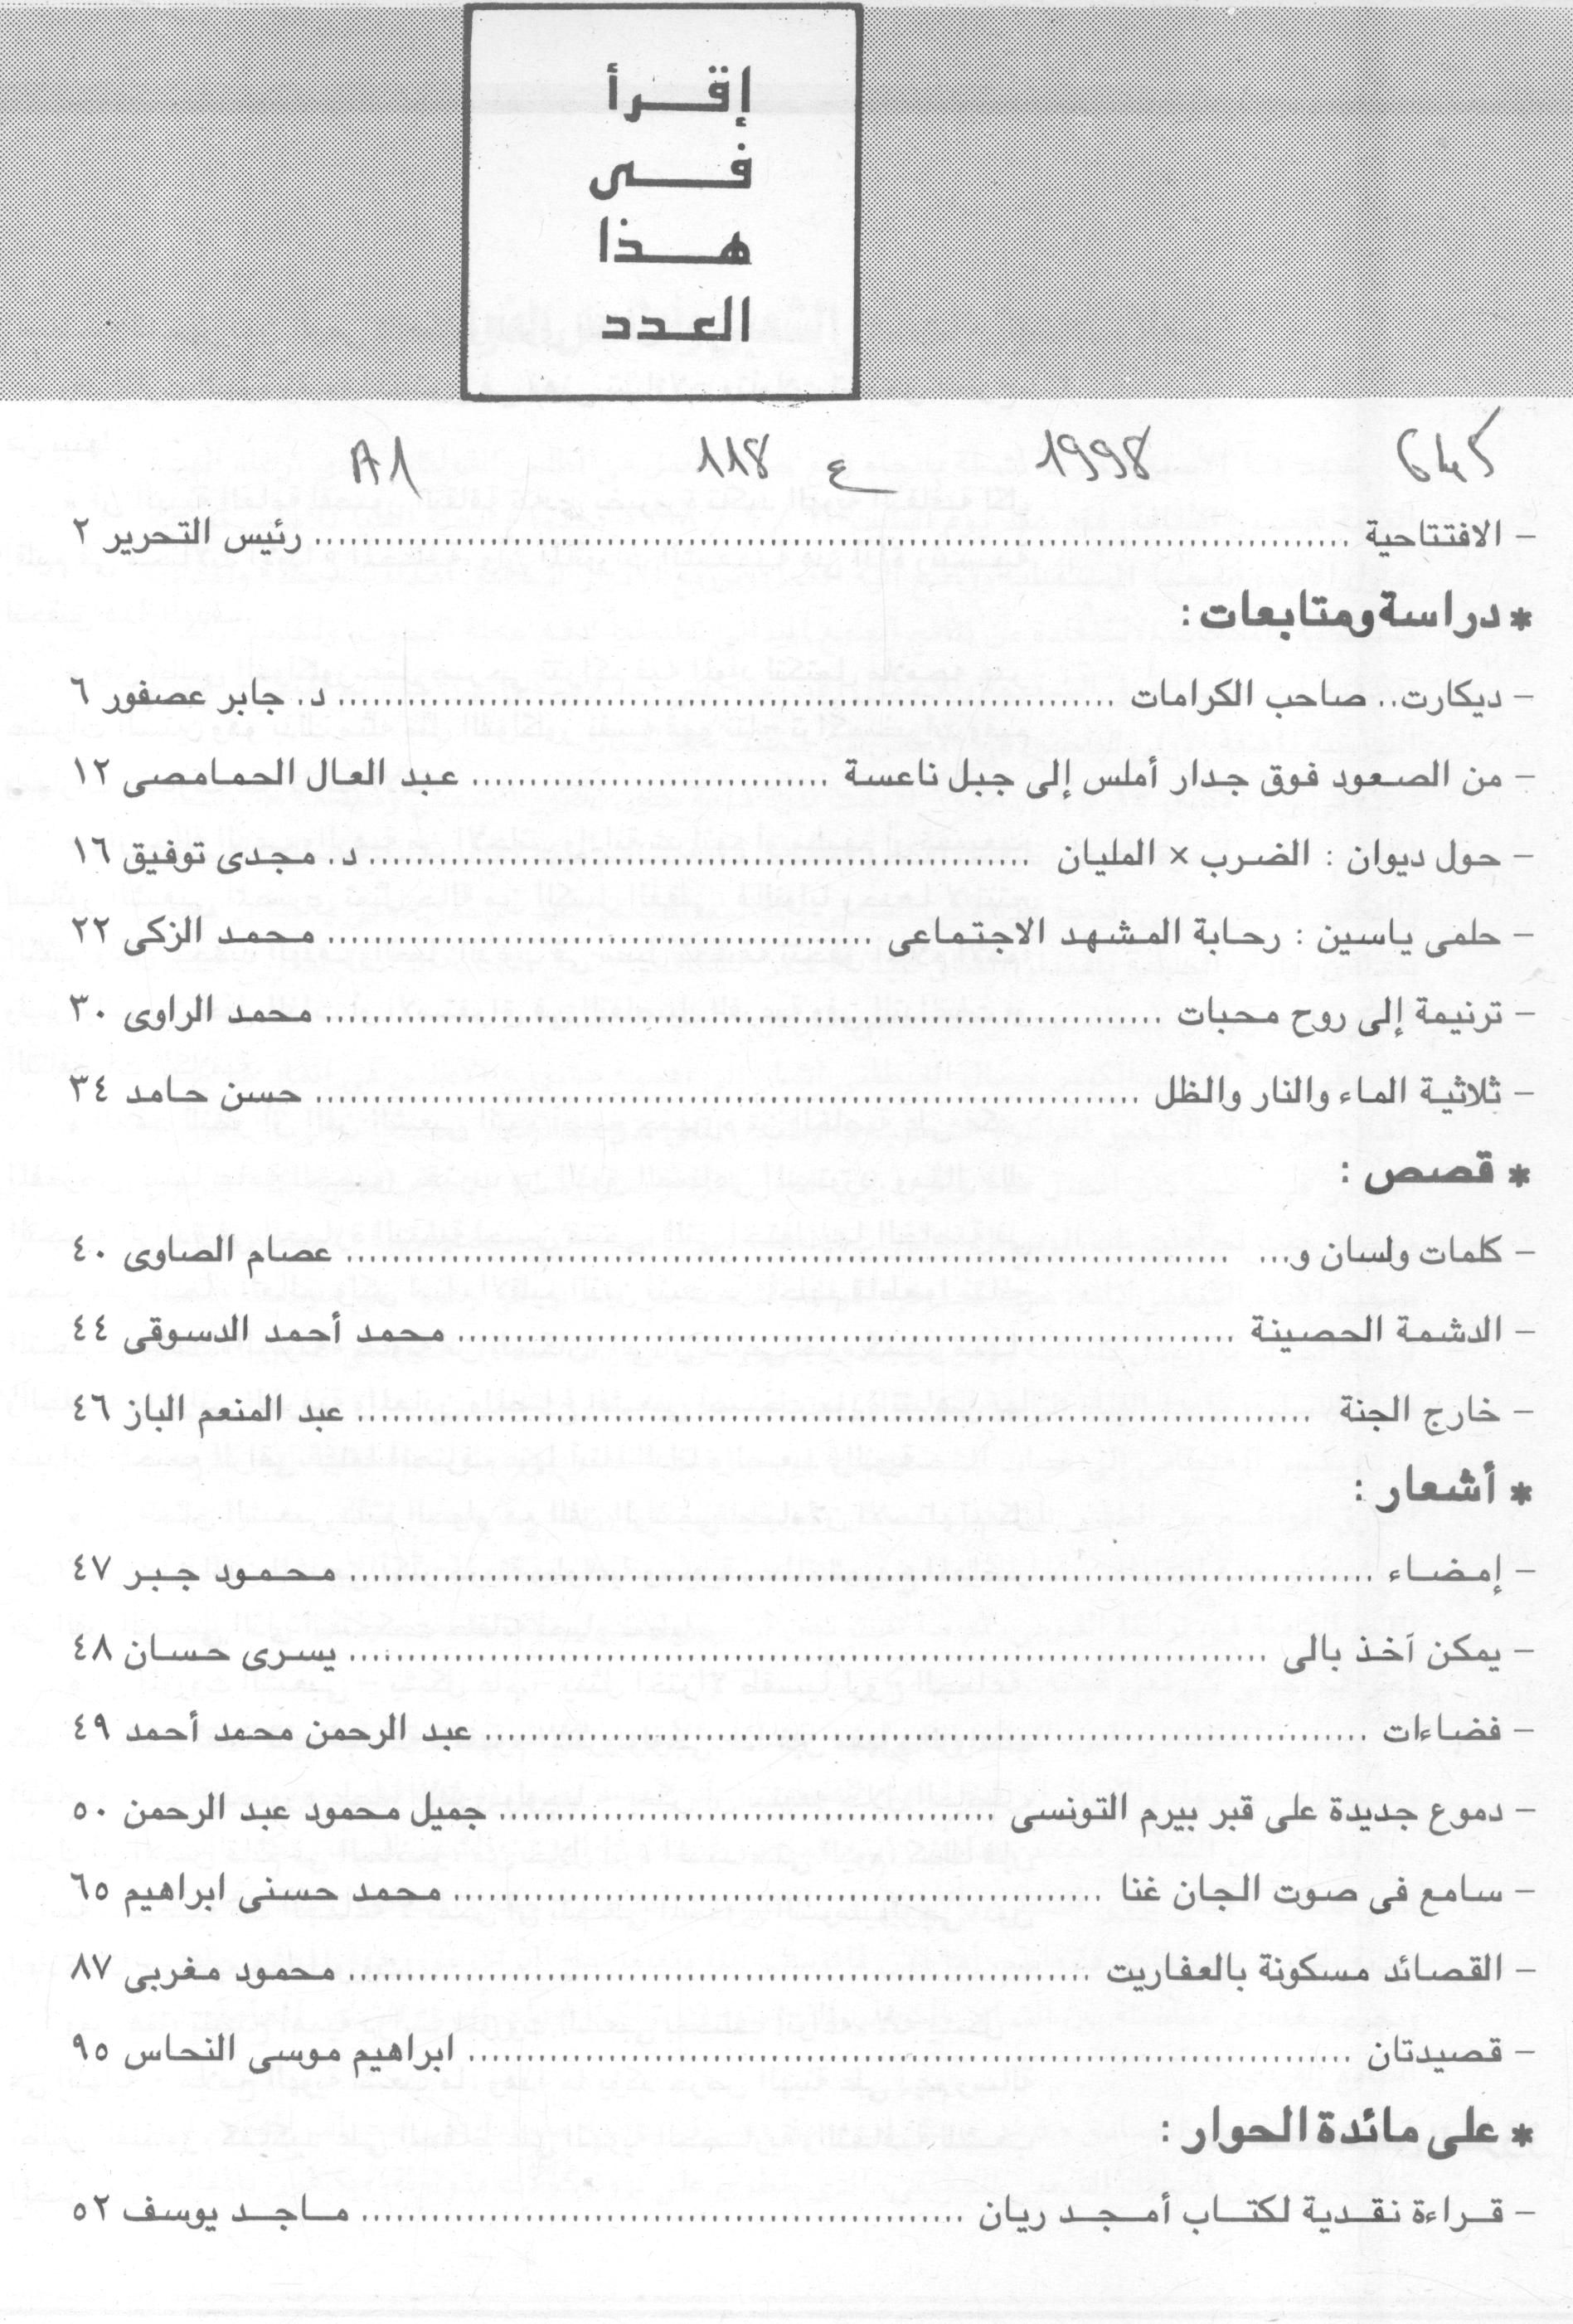 إقرأ
فى
هذا
العدد
645 1998 ع 118 A1
- الافتتاحية ........ رئيس التحرير ٢
* دراسة ومتابعات :
- ديكارت.. صاحب الكرامات ........ د. جابر عصفور ٦
- من الصعود فوق جدار أملس إلى جبل ناعسة ........ عبد العال الحمامصى ١٢
- حول ديوان : الضرب × المليان ........ د. مجدى توفيق ١٦
- حلمى ياسين : رحابة المشهد الاجتماعى ........ محمد الزكى ٢٢
- ترنيمة إلى روح محبات ........ محمد الراوى ٣٠
- ثلاثية الماء والنار والظل ........ حسن حامد ٣٤
* قصص :
- كلمات ولسان و... ........ عصام الصاوى ٤٠
- الدشمة الحصينة ........ محمد أحمد الدسوقى ٤٤
- خارج الجنة ........ عبد المنعم الباز ٤٦
* أشعار :
- إمضاء ........ محمود جبر ٤٧
- يمكن آخذ بالى ........ يسرى حسان ٤٨
- فضاءات ........ عبد الرحمن محمد أحمد ٤٩
- دموع جديدة على قبر بيرم التونسى ........ جميل محمود عبد الرحمن ٥٠
- سامع فى صوت الجان غنا ........ محمد حسنى ابراهيم ٦٥
- القصائد مسكونة بالعفاريت ........ محمود مغربى ٨٧
- قصيدتان ........ ابراهيم موسى النحاس ٩٥
* على مائدة الحوار :
- قراءة نقدية لكتاب أمجد ريان ........ ماجد يوسف ٥٢